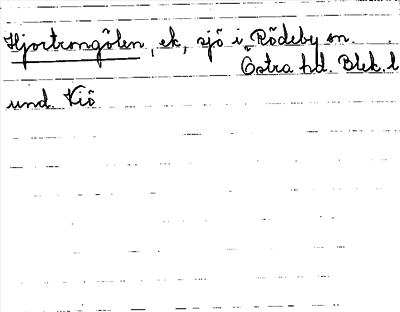 Hjortrongölen, ek, sjö i Rödeby sn.
Östra hd. Blek. l
und. Viö